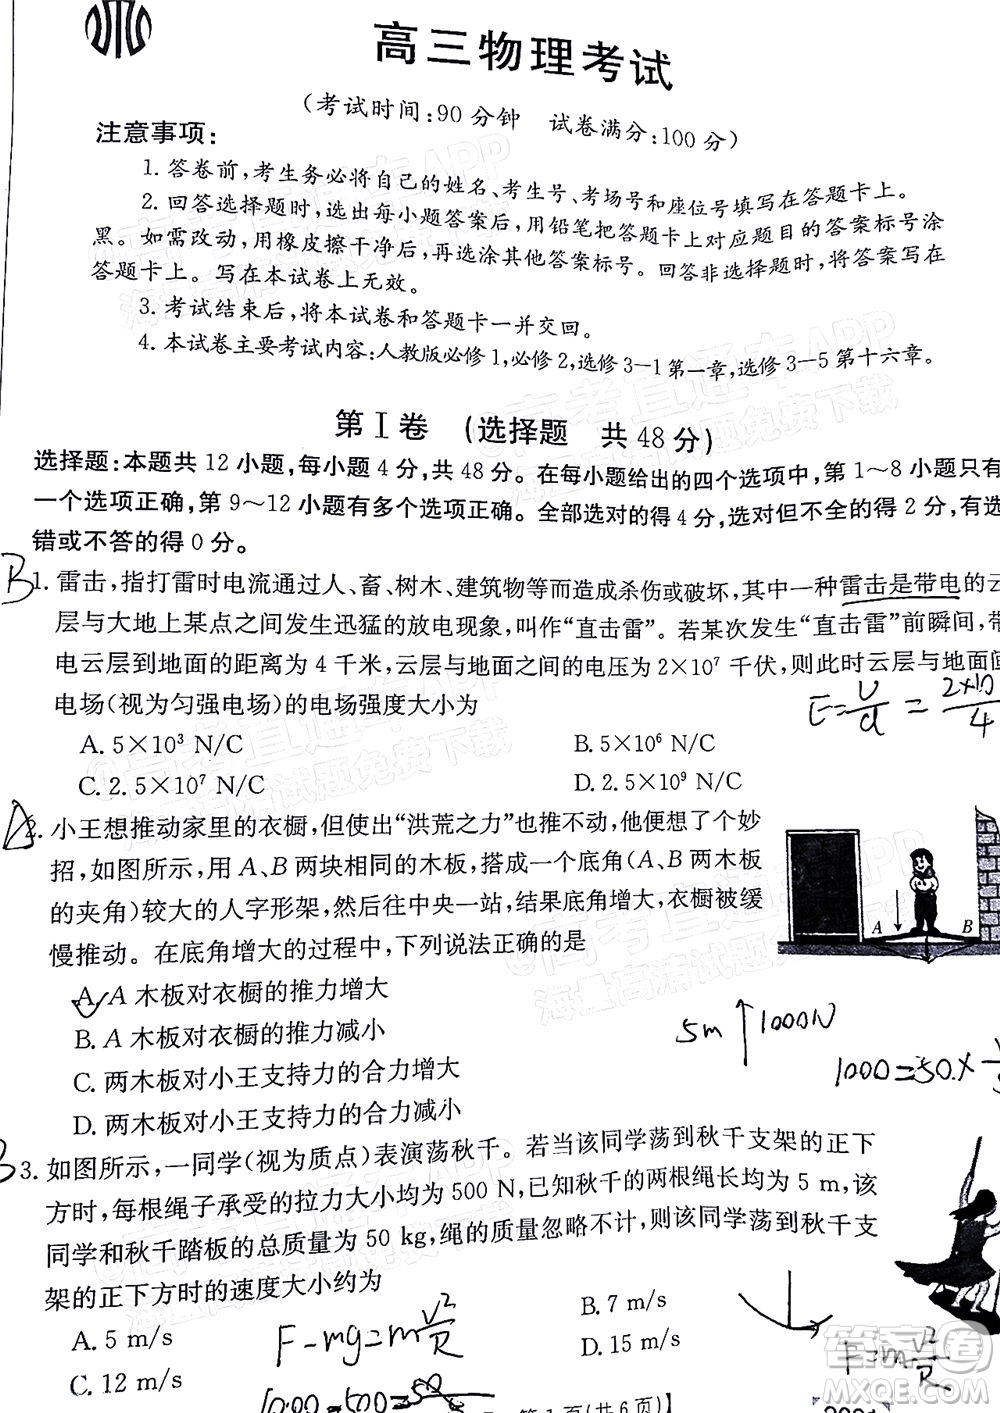 高三物理考试
(考试时间:90分钟 试卷满分:100分)
注意事项:
1. 答卷前,考生务必将自己的姓名、考生号、考场号和座位号填写在答题卡上。
2. 回答选择题时,选出每小题答案后,用铅笔把答题卡上对应题目的答案标号涂
黑。如需改动,用橡皮擦干净后,再选涂其他答案标号。回答非选择题时,将答案写在
答题卡上。写在本试卷上无效。
3. 考试结束后,将本试卷和答题卡一并交回。
4. 本试卷主要考试内容:人教版必修1,必修2,选修3-1第一章,选修3-5第十六章。
第Ⅰ卷 (选择题 共48分)
选择题:本题共12小题,每小题4分,共48分。在每小题给出的四个选项中,第1~8小题只有
一个选项正确,第9~12小题有多个选项正确。全部选对的得4分,选对但不全的得2分,有选
错或不答的得0分。
B 1. 雷击,指打雷时电流通过人、畜、树木、建筑物等而造成杀伤或破坏,其中一种雷击是带电的云
层与大地上某点之间发生迅猛的放电现象,叫作“直击雷”。若某次发生“直击雷”前瞬间,带
电云层到地面的距离为4千米,云层与地面之间的电压为2×10⁷千伏,则此时云层与地面间
电场(视为匀强电场)的电场强度大小为
E=U/d=2×10/4
A. 5×10³ N/C B. 5×10⁶ N/C
C. 2.5×10⁷ N/C D. 2.5×10⁹ N/C
A 2. 小王想推动家里的衣橱,但使出“洪荒之力”也推不动,他便想了个妙
招,如图所示,用A、B两块相同的木板,搭成一个底角(A、B两木板
的夹角)较大的人字形架,然后往中央一站,结果底角增大,衣橱被缓
慢推动。在底角增大的过程中,下列说法正确的是
A B
A. A木板对衣橱的推力增大
B. A木板对衣橱的推力减小
C. 两木板对小王支持力的合力增大
D. 两木板对小王支持力的合力减小
5m 1000N
1000=50×
B 3. 如图所示,一同学(视为质点)表演荡秋千。若当该同学荡到秋千支架的正下
方时,每根绳子承受的拉力大小均为500 N,已知秋千的两根绳长均为5 m,该
同学和秋千踏板的总质量为50 kg,绳的质量忽略不计,则该同学荡到秋千支
架的正下方时的速度大小约为
A. 5 m/s B. 7 m/s
C. 12 m/s D. 15 m/s
F-mg=m v²/R
F=m v²/R
1000-500=50
第1页(共6页)】
答案圈